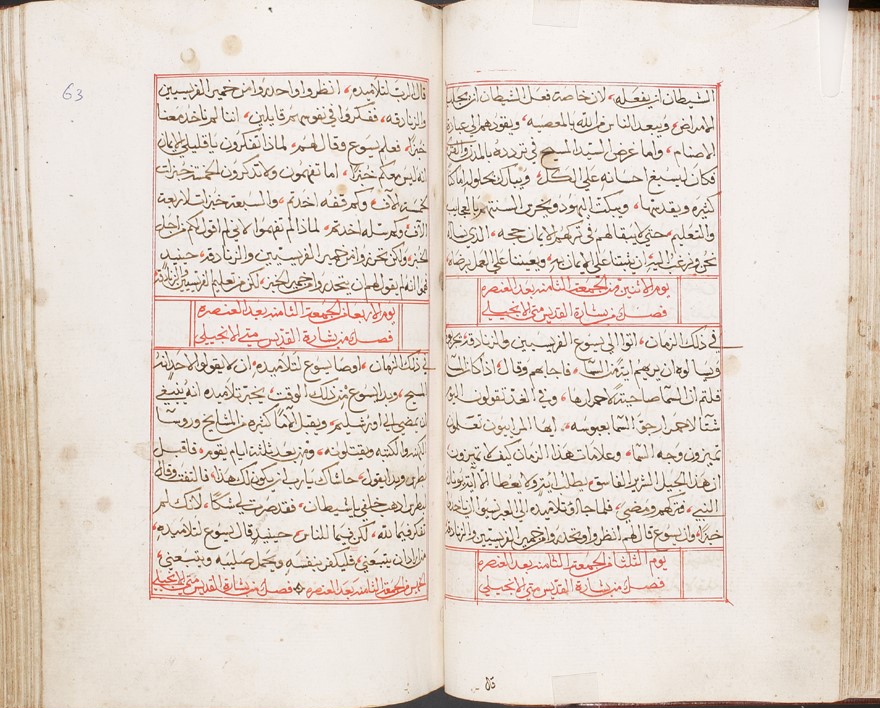 الشيطان ان يفعله، لان خاصة فعل الشيطان ان يجلب
الامراض، ويبعد الناس من الله بالمعصيه، ويقودهم الي عبادة
الاصنام، واما غرض السيد المسيح في تردده بالمدن والقرا
فكان ليسبغ احسانه علي الكل، ويبارك بحلوله اماكنا
كثيره ويقدسها، ويبكت اليهود ويخرس السنتهم بالعجايب
والتعليم، حتي لا يبقا لهم في تركهم الايمان حجه، الذي نساله
نحن ونرغب اليه ان يثبتنا علي الايمان به، ويعيننا علي العمل برضاه
يوم الاثنين من الجمعة الثامنه بعد العنصره
فصل من بشارة القديس متي الانجيلي
في ذلك الزمان، اتوا الي يسوع الفريسيين والزنادقه يجربوه
ويسالوه ان يريهم اية من السما، فاجابهم وقال، اذا كان المسا
قلتم ان السما صاحيه لاحمرارها، وفي الغد تقولون اليوم
شتا لاحمرار جو السما بعبوسه، ايها المرايون تعلمون
تميزون وجه السما، وعلامات هذا الزمان كيف لا تميزون
ان هذا الجيل الشرير الفاسق يطلب اية ولا يعطا الا اية يونان
النبي، فتركهم ومضي، فلما جاوا تلاميذه الي العبر نسوا ان ياخذوا
خبزا، وان يسوع قال لهم انظروا وتحذروا من خمير الفريسيين والزنادقه
يوم الثلثا من الجمعة الثامنه بعد العنصره
فصل من بشارة القديس متي الانجيلي
63
قال الرب لتلاميذه، انظروا واحذروا من خمير الفريسيين
والزنادقه، ففكروا في نفوسهم قايلين، اننا لم ناخذ معنا
خبزا، فعلم يسوع وقال لهم، لماذا تفكرون يا قليلي الايمان
انه ليس معكم خبزا، اما تفهمون ولا تذكرون الخمسة خبزات
لخمسة الاف، وكم قفه اخذتم، والسبعة خبزات لاربعة
الاف وكم سله اخذتم، لماذا لم تفهموا الاني لم اقول لكم من اجل
الخبز، ولكن تحرزوا من خمير الفريسيين والزنادقه، حينيذ
فهموا انه لم يقول لهم ان يتحذروا من خمير الخبز، لكن من تعليم الفريسيين والزنادقه
يوم الاربعا من الجمعة الثامنه بعد العنصره
فصل من بشارة القديس متي الانجيلي
في ذلك الزمان، اوصا يسوع لتلاميذه، ان لا يقولوا لاحد انه
المسيح، وبدا يسوع من ذلك الوقت، يخبر تلاميذه انه ينبغي
ان يمضي الي اورشليم، ويقبل الاما كثيره من المشايخ وروسا
الكهنه والكتبه ويقتلونه، ومن بعد ثلثة ايام يقوم، فاقبل
بطرس وبدا يقول، حاشاك يارب ان يكون لك هذا، فالتفت وقال
لبطرس اذهب خلفي يا شيطان، فقد صرت لي شكا، لانك لم
تفكر فيما لله، لكن فيما للناس، حينيذ قال يسوع لتلاميذه،
من اراد ان يتبعني، فليكفر بنفسه ويحمل صليبه ويتبعني،
الخميس من الجمعة الثامنه بعد العنصره فصل من بشارة القديس متي الانجيلي